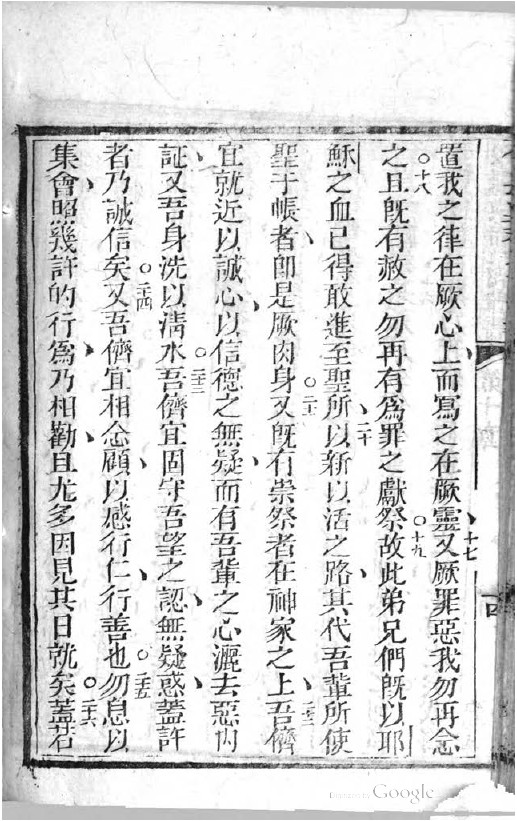 置我之律在厥心上而寫之在厥靈十七又厥罪惡我勿再念
之十八且既有赦之勿再有為罪之獻祭十九故此弟兄們既以耶
穌之血已得敢進至聖所二十以新以活之路其代吾輩所使
聖于帳者即是厥肉身二十一又既有崇祭者在神家之上二十二吾儕
宜就近以誠心以信德之無疑而有吾輩之心灑去惡內
証又吾身洗以清水二十三吾儕宜固守吾望之認無疑惑蓋許
者乃誠信矣二十四又吾儕宜相念顧以感行仁行善也二十五勿息以
集會照幾許的行為乃相勸且尤多因見其日就矣二十六蓋若
Digitized by Google